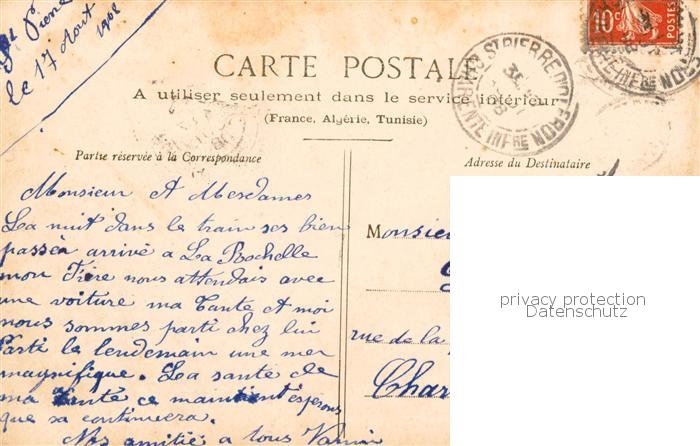 St Pierre
le 17 Aout 1908
10c
POSTES
CARTE POSTALE
A utiliser seulement dans le service intérieur
(France, Algérie, Tunisie)
ST PIERRE D'OLERON
CHARENTE INFRE
Partie réservée à la Correspondance
Adresse du Destinataire
Monsieur et Mesdames
La nuit dans le train ses bien
passèa arrivé a La Rochelle
mon Frère nous attendais avec
une voiture ma Tante et moi
nous sommes parti chez lui
Parti le lendemain une mer
magnifique. La santé de
ma Tante ce maintient ésperons
que sa continuera.
Nos amitié a tous
Monsieu
rue de la
Char
privacy protection
Datenschutz